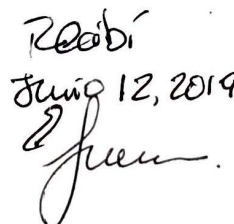 Recibí
Junio 12, 2019